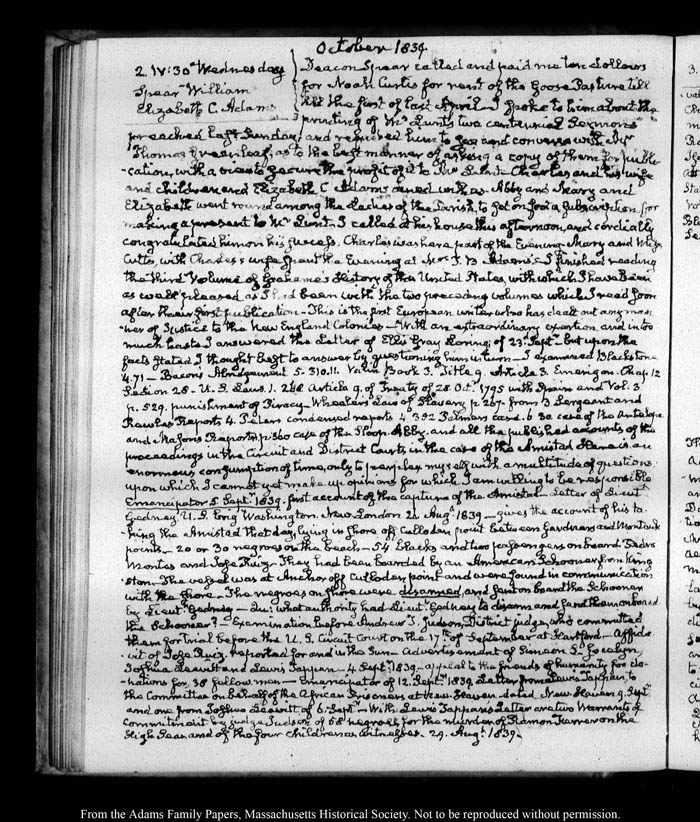 October 1839
2. IV:30 Wednesday
Spear William
Elizabeth C. Adams
Deacon Spear called and paid me ten dollars
for Noah Curtis for rent of the Goose Pasture till
till the first of last April. I spoke to him about the
printing of Mr Lunt's two centurial Sermons
preached last Sunday, and referred him to see and converse with Mr
Thomas Greenleaf, as to the best manner of asking a copy of them for publi-
-cation, with a view to secure the profit of it to Mr Lunt. Charles and his wife
and children and Elizabeth C Adams dined with us. Abby and Mary and
Elizabeth went round among the Ladies of the Parish, to get on foot a subscription for
making a present to Mr Lunt. I called at his house this afternoon, and cordially
congratulated him on his success. Charles was here part of the Evening. Mary and Miss
Cutts, with Charles's wife spent the Evening at Mrs J. B. Adams's. I finished reading
the third volume of Grahame's History of the United States, with which I have been
as well pleased as I had been with the two preceding volumes which I read soon
after their first publication. This is the first European writer who has dealt out any mea-
-sure of Justice to the New England Colonies. With an extraordinary exertion and in too
much haste I answered the Letter of Ellis Gray Loring, of 23. Septr but upon the
facts stated I thought best to answer by questioning him in turn. I examined Blackstone
4.71 — Bacon's Abridgement 5. 310.11. Valin Book 3. Title 9. Article 3. Emerigon. Chap. 12
Section 28 - U. S. Laws. 1. 268 Article 9. of Treaty of 28 Octr 1795 with Spain and Vol. 3
p. 529. punishment of Piracy. Wheeler's Law of Slavery p. 267. from 3 Sergeant and
Rawles Reports 4. Peters condensed reports 4. 392 Palmers case. 6. 30. case of the Antelope
and Mason's Reports p. 360 case of the Sloop Abby, and all the published accounts of the
proceedings in the Circuit and District Courts in the case of the Amistad. Here is an
enormous consumption of time, only to perplex myself with a multitude of questions
upon which I cannot yet make up opinions for which I am willing to be responsible
Emancipator 5 Septr 1839. first account of the capture of the Amistad — Letter of Lieut
Gedney, U. S. brig Washington. New London 26 Augt 1839 — gives the account of his ta-
-king the Amistad that day, lying in shore off Culloden point between Gardners and Montauk
points — 20 or 30 negroes on the beach — 54 blacks and two passengers on board Pedro
Montes and Jose Ruiz. They had been boarded by an American Schooner from King-
-ston. The vessel was at Anchor off Culloden point and were found in communication
with the shore. The negroes on shore were disarmed and sent on board the Schooner
by Lieut Gedney — Qu: what authority had Lieut Gedney to disarm and send them on board
the Schooner? — Examination before Andrew T. Judson, District judge, who committed
them for trial before the U. S. Circuit Court on the 17th of September at Hartford — Affida-
-vit of Jose Ruiz. reported for and in the Sun. Advertisement of Simeon S. Jocelyn,
Joshua Leavitt and Lewis Tappan. 4. Septr 1839 — appeal to the friends of humanity for do-
-nations for 38 fellow men — Emancipator of 12. Septr 1839. Letter from Lewis Tappan, to
the Committee on behalf of the African Prisoners at New Haven dated New Haven 9. Septr
and one from Joshua Leavitt of 6. Septr — With Lewis Tappan's Letter are two Warrants of
commitment by judge Judson of 38 negroes, for the murder of Ramon Ferrer on the
High Seas, and of the four children as Witnesses. 29. Augt 1839.
From the Adams Family Papers, Massachusetts Historical Society. Not to be reproduced without permission.